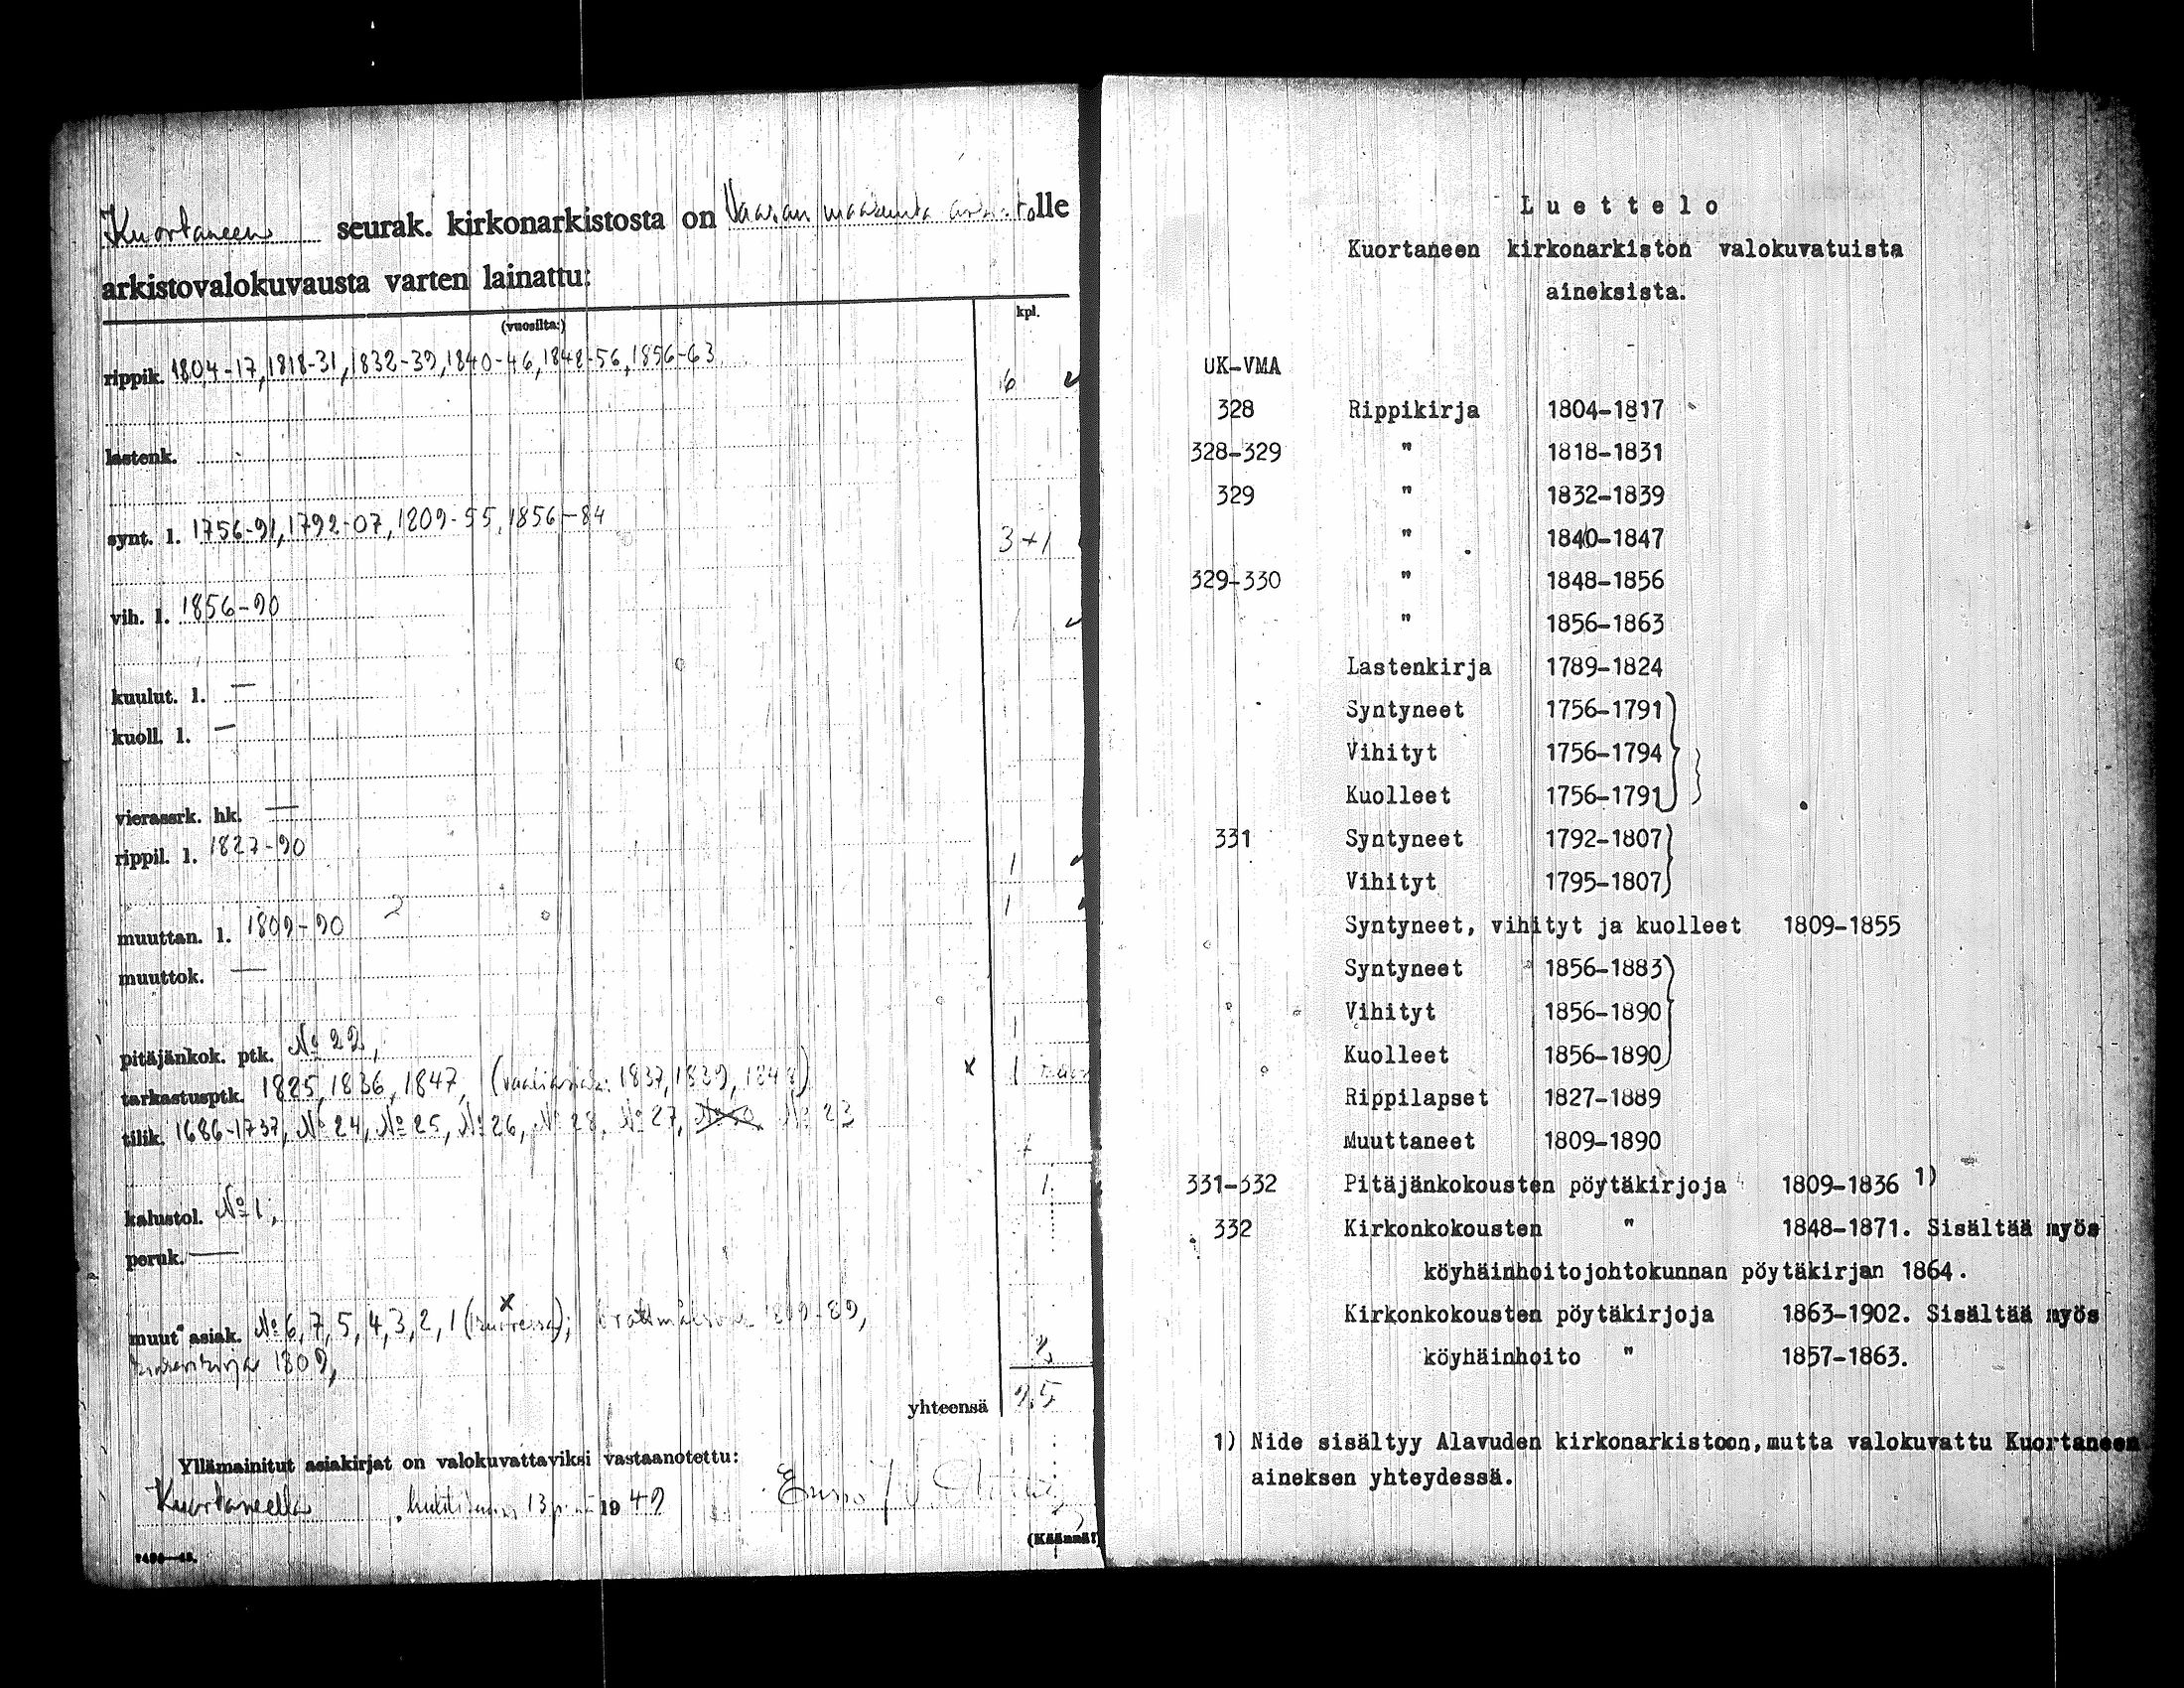 Kuortaneen seurak. kirkonarkistosta on Vaasan maakunta arkistolle
arkistovalokuvausta varten lainattu:
(vuosilta:) kpl.
rippik. 1804-17, 1818-31, 1832-39, 1840-46, 1848-56, 1856-63 6 ✓
lastenk.
synt. l. 1756-91, 1792-07, 1809-55, 1856-84 3+1
vih. l. 1856-90 1 ✓
kuulut. l. —
kuoll. l. —
vierassrk. hk. —
rippil. l. 1827-90 1 ✓
muuttan. l. 1809-90 2 1
muuttok. —
pitäjänkok. ptk. No 22, 1
tarkastusptk. 1825, 1836, 1847, (vaaliasiak: 1837, 1839, 1848) x 1
tilik. 1686-1737, No 24, No 25, No 26, No 28, No 27, No 23
kalustol. No 1, 1
peruk. —
muut asiak. No 6, 7, 5, 4, 3, 2, 1
1809,
yhteensä 25
Yllämainitut asiakirjat on valokuvattaviksi vastaanotettu:
Kuortaneella, huhtikuun 13 p. 1949
(Käännä!)
L u e t t e l o
Kuortaneen kirkonarkiston valokuvatuista
aineksista.
UK-VMA
328 Rippikirja 1804-1817
328-329 " 1818-1831
329 " 1832-1839
" 1840-1847
329-330 " 1848-1856
" 1856-1863
Lastenkirja 1789-1824
Syntyneet 1756-1791
Vihityt 1756-1794
Kuolleet 1756-1791
331 Syntyneet 1792-1807
Vihityt 1795-1807
Syntyneet, vihityt ja kuolleet 1809-1855
Syntyneet 1856-1883
Vihityt 1856-1890
Kuolleet 1856-1890
Rippilapset 1827-1889
Muuttaneet 1809-1890
331-332 Pitäjänkokousten pöytäkirjoja 1809-1836 1)
332 Kirkonkokousten " 1848-1871. Sisältää myös
köyhäinhoitojohtokunnan pöytäkirjan 1864.
Kirkonkokousten pöytäkirjoja 1863-1902. Sisältää myös
köyhäinhoito " 1857-1863.
1) Nide sisältyy Alavuden kirkonarkistoon, mutta valokuvattu Kuortaneen
aineksen yhteydessä.